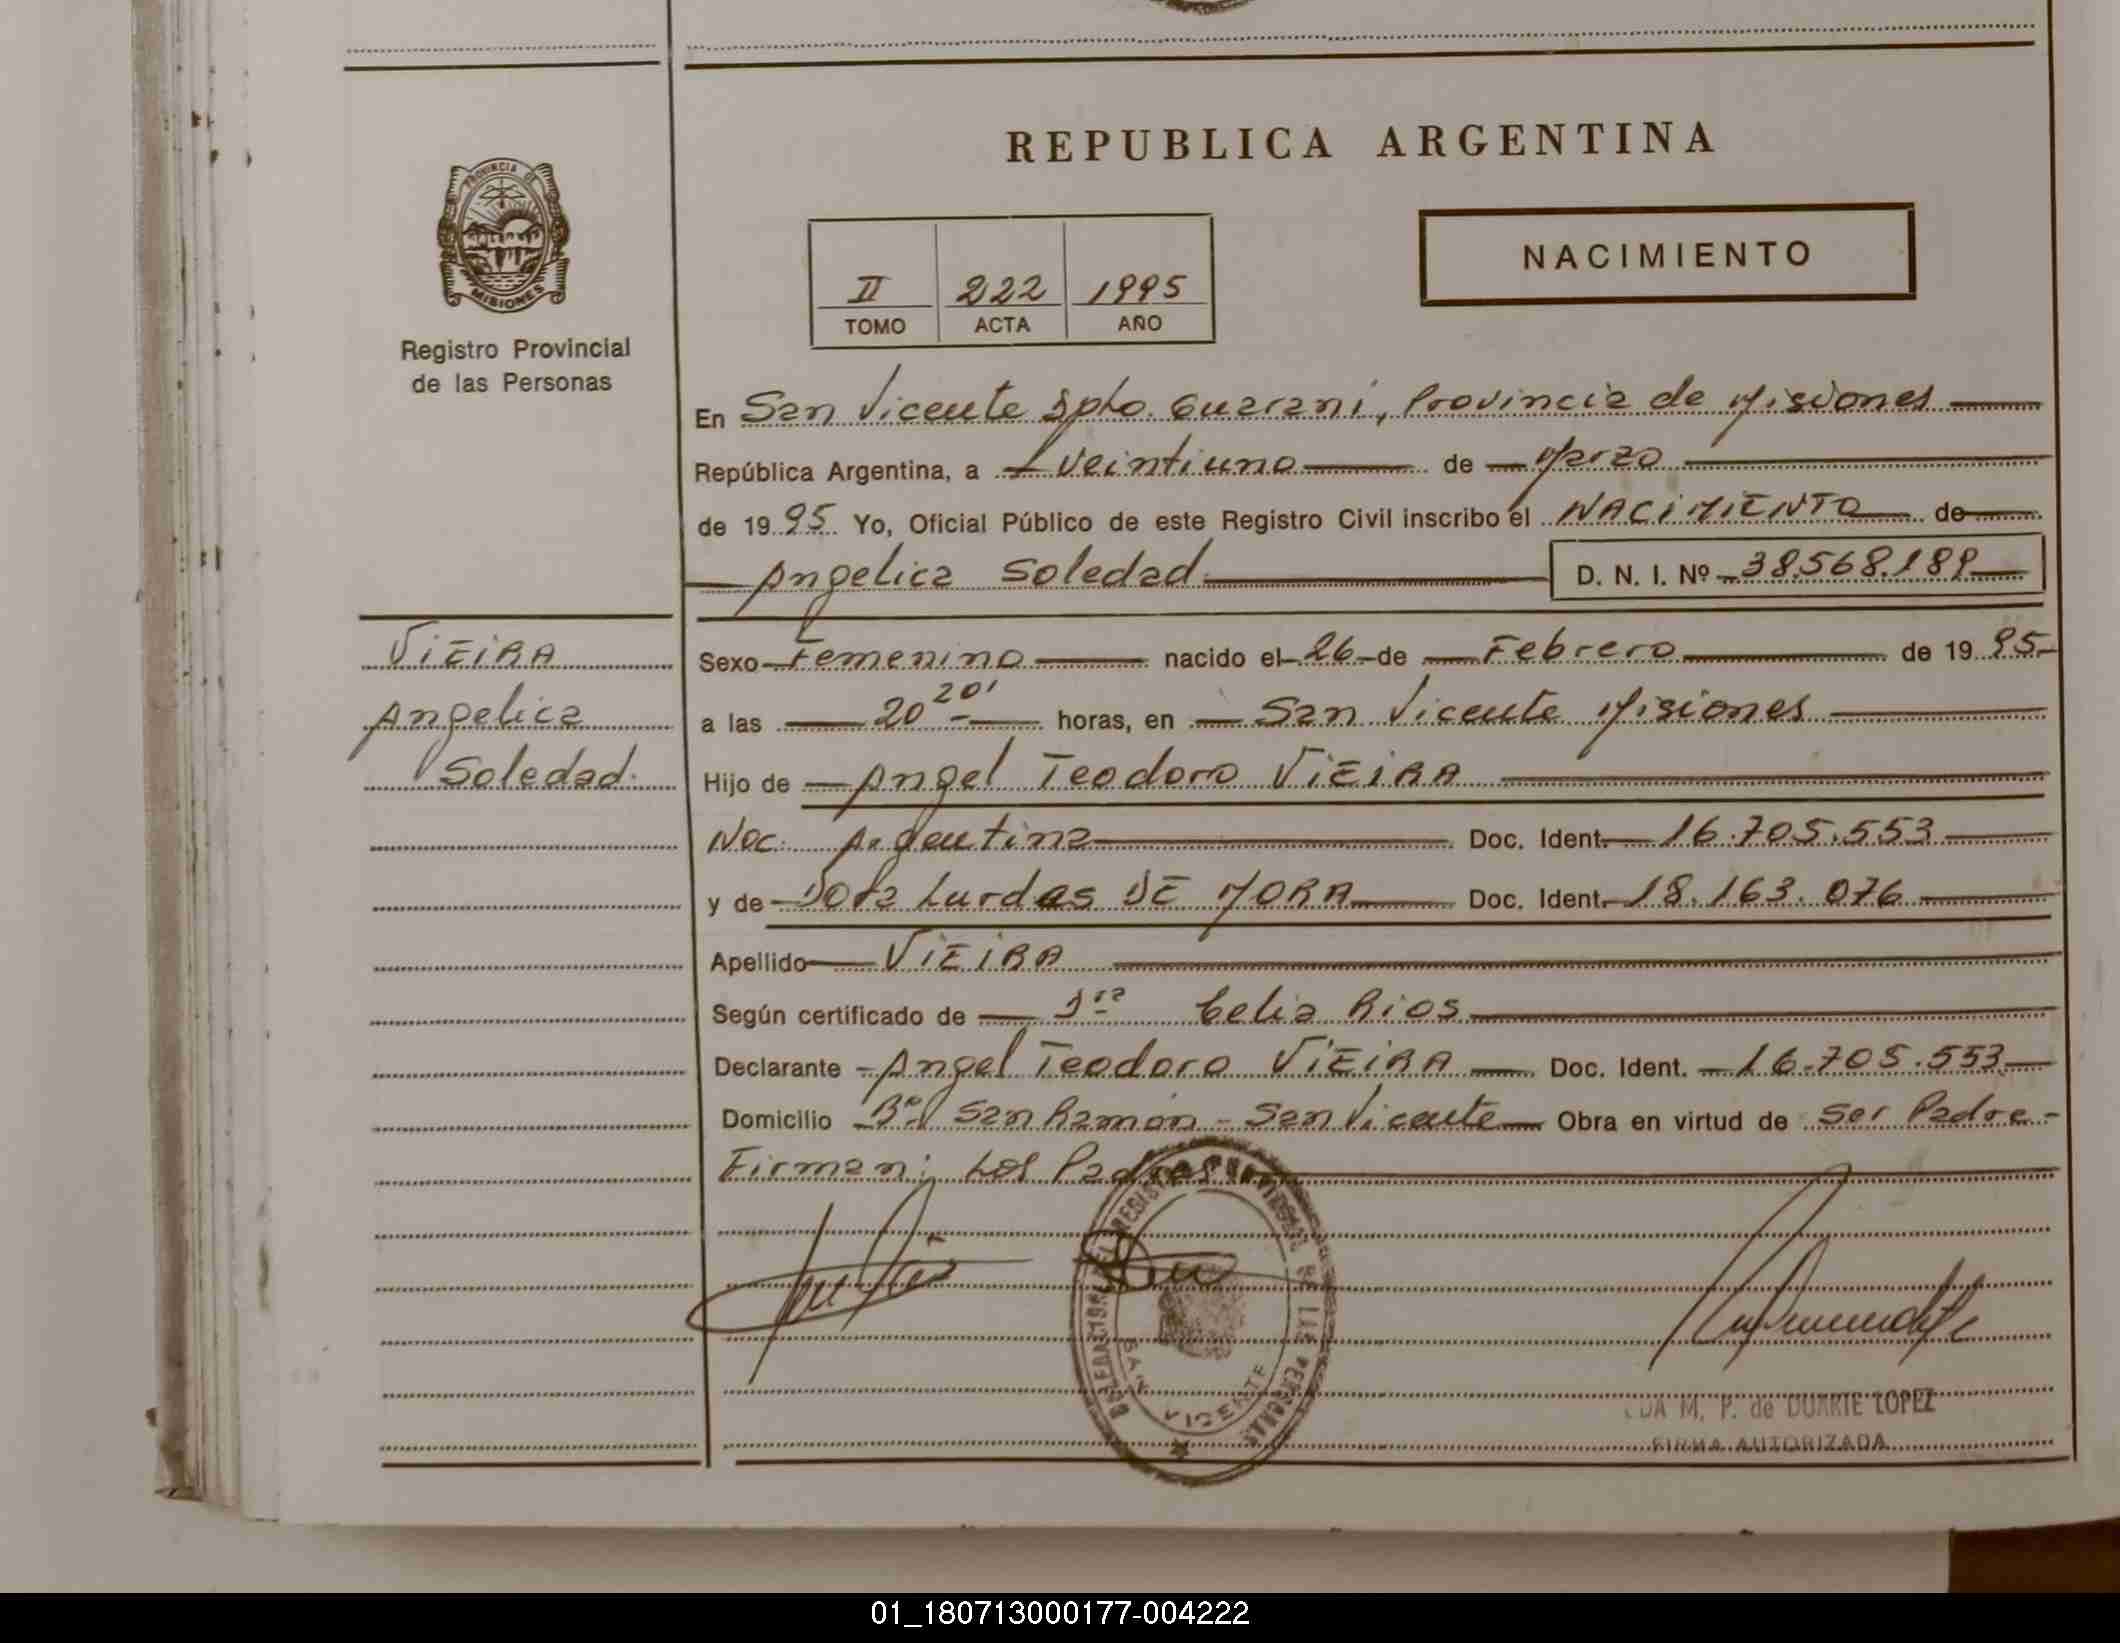 REPUBLICA ARGENTINA
PROVINCIA DE
MISIONES
Registro Provincial
de las Personas
NACIMIENTO
II 222 1995
TOMO ACTA AÑO
En San Vicente Dpto. Guarani, Provincia de Misiones
República Argentina, a veintiuno de Marzo
de 1995 Yo, Oficial Público de este Registro Civil inscribo el NACIMIENTO de
Angelica Soledad D. N. I. Nº 38.568.189
VIEIRA
Angelica
Soledad.
Sexo Femenino nacido el 26 de Febrero de 1995
a las 20 20' horas, en San Vicente Misiones
Hijo de Angel Teodoro VIEIRA
Nac. Argentina Doc. Ident. 16.705.553
y de Lurdes DE MORA Doc. Ident. 18.163.076
Apellido VIEIRA
Según certificado de Celia Rios
Declarante Angel Teodoro VIEIRA Doc. Ident. 16.705.553
Domicilio Bº San Ramón - San Vicente Obra en virtud de Ser Padre
Firman: Los Padres
SAN VICENTE
M. P. de DUARTE LOPEZ
FIRMA AUTORIZADA
01_180713000177-004222